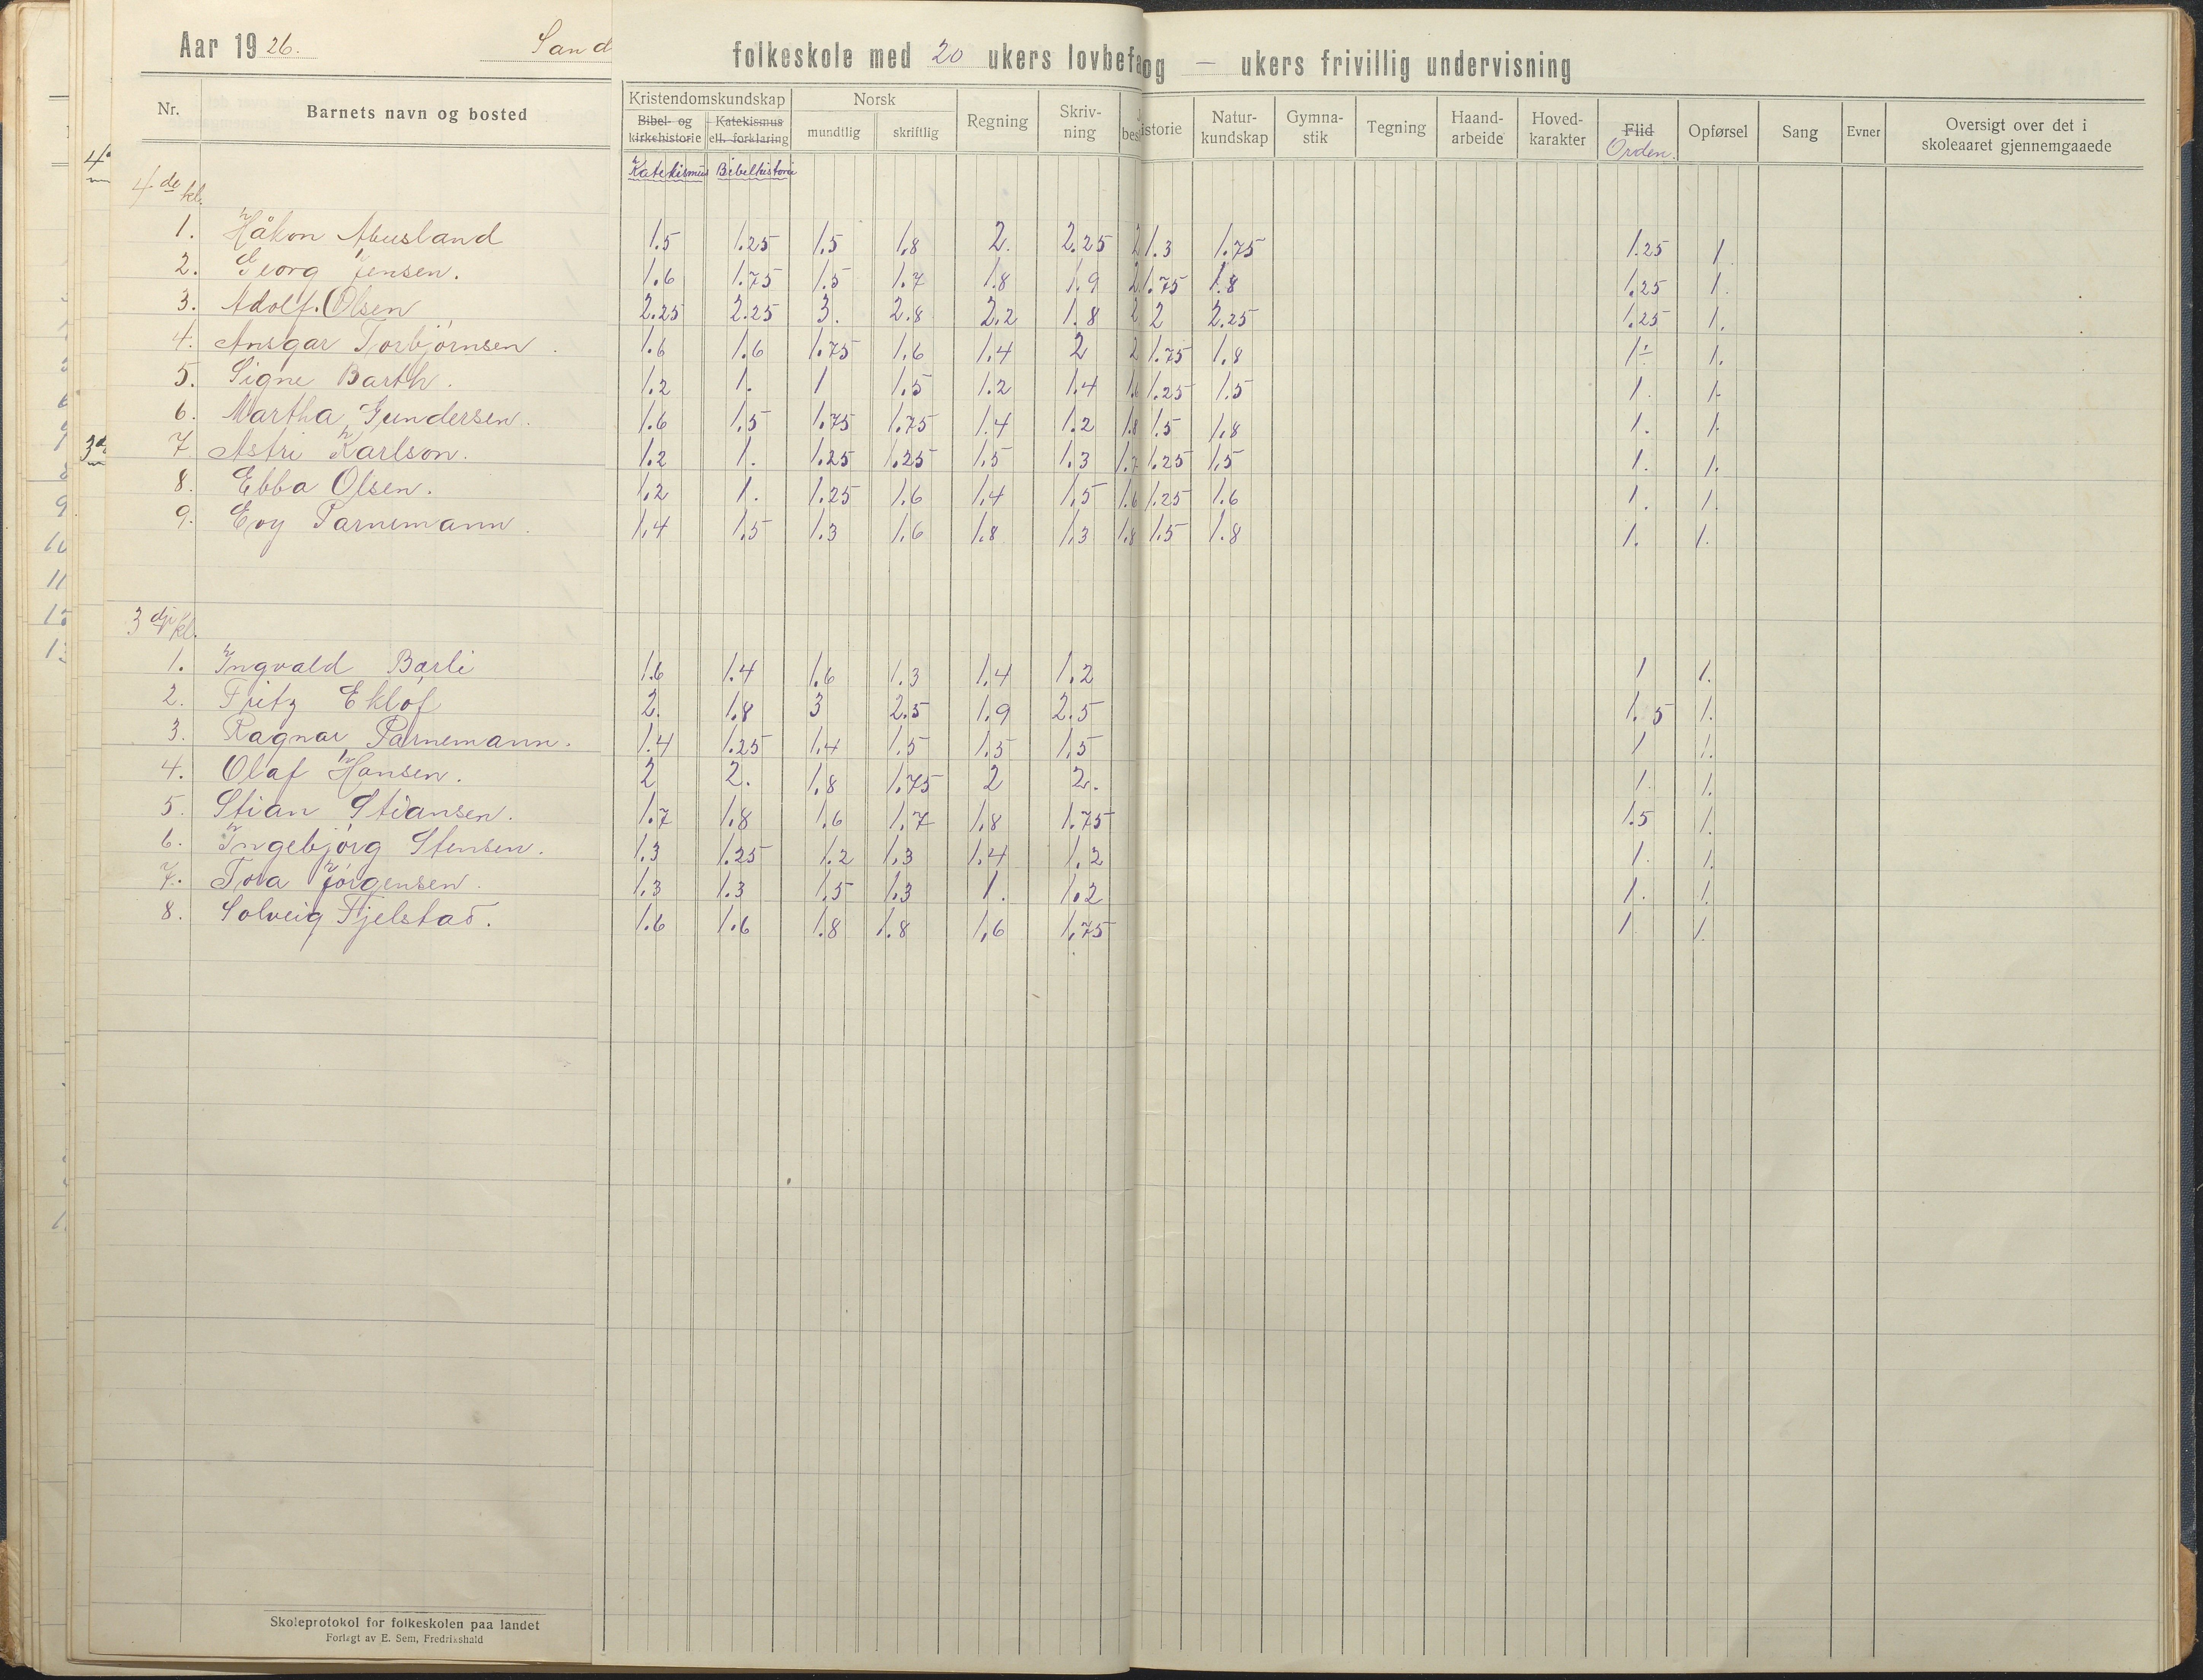 Aar 1926. Sand folkeskole med 20 ukers lovbefa og — ukers frivillig undervisning
Nr. Barnets navn og bosted Kristendomskundskap Norsk Regning Skriv-ning bes istorie Natur-kundskap Gymna-stik Tegning Haand-arbeide Hoved-karakter Flid Orden. Opførsel Sang Evner Oversigt over det i skoleaaret gjennemgaaede
Bibel- og kirkehistorie Katekismus ell. forklaring mundtlig skriftlig
Katekismus Bibelhistorie
4de kl.
1. Håkon Abusland 1.5 1.25 1.5 1.8 2. 2.25 2 1.3 1.75 1.25 1
2. Georg Jensen. 1.6 1.75 1.5 1.7 1.8 1.9 2 1.75 1.8 1.25 1.
3. Adolf. Olsen 2.25 2.25 3. 2.8 2.2 1.8 2 2 2.25 1.25 1.
4. Ansgar Torbjørnsen. 1.6 1.6 1.75 1.6 1.4 2 2 1.75 1.8 1÷ 1.
5. Signe Barth. 1.2 1. 1 1.5 1.2 1.4 1.6 1.25 1.5 1. 1.
6. Martha Gundersen. 1.6 1.5 1.75 1.75 1.4 1.2 1.8 1.5 1.8 1. 1.
7. Astri Karlson. 1.2 1. 1.25 1.25 1.5 1.3 1.7 1.25 1.5 1. 1.
8. Ebba Olsen. 1.2 1. 1.25 1.6 1.4 1.5 1.6 1.25 1.6 1. 1.
9. Evy Parnemann. 1.4 1.5 1.3 1.6 1.8 1.3 1.8 1.5 1.8 1. 1.
3dje kl.
1. Ingvald Bærli 1.6 1.4 1.6 1.3 1.4 1.2 1 1.
2. Fritz Ekløf 2. 1.8 3 2.5 1.9 2.5 1.5 1.
3. Ragnar Parnemann. 1.4 1.25 1.4 1.5 1.5 1.5 1 1.
4. Olaf Hansen. 2 2. 1.8 1.75 2 2. 1. 1.
5. Stian Stiansen. 1.7 1.8 1.6 1.7 1.8 1.75 1.5 1.
6. Ingebjørg Stensen. 1.3 1.25 1.2 1.3 1.4 1.2 1. 1.
7. Tora Jørgensen. 1.3 1.3 1.5 1.3 1. 1.2 1. 1.
8. Solveig Fjelstad. 1.6 1.6 1.8 1.8 1.6 1.75 1 1.
Skoleprotokol for folkeskolen paa landet
Forlagt av E. Sem, Fredrikshald